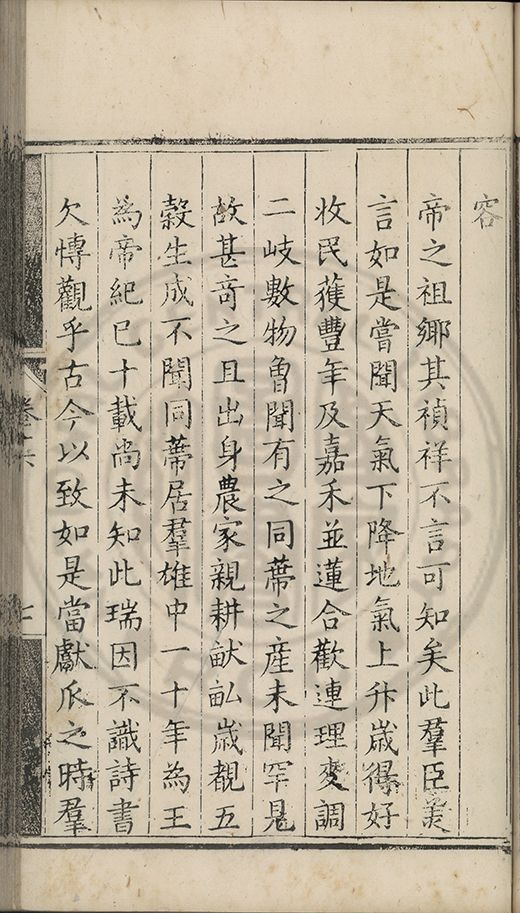 容
帝之祖鄉其禎祥不言可知矣此羣臣美
言如是嘗聞天氣下降地氣上升歲得好
收民獲豐年及嘉禾並蓮合歡連理麥調
二岐數物曾聞有之同蔕之產未聞罕見
故甚竒之且出身農家親耕畎畝歲覩五
穀生成不聞同蔕居羣雄中一十年為王
為帝紀已十載尚未知此瑞因不識詩書
欠愽觀乎古今以致如是當獻瓜之時羣
卷六
七